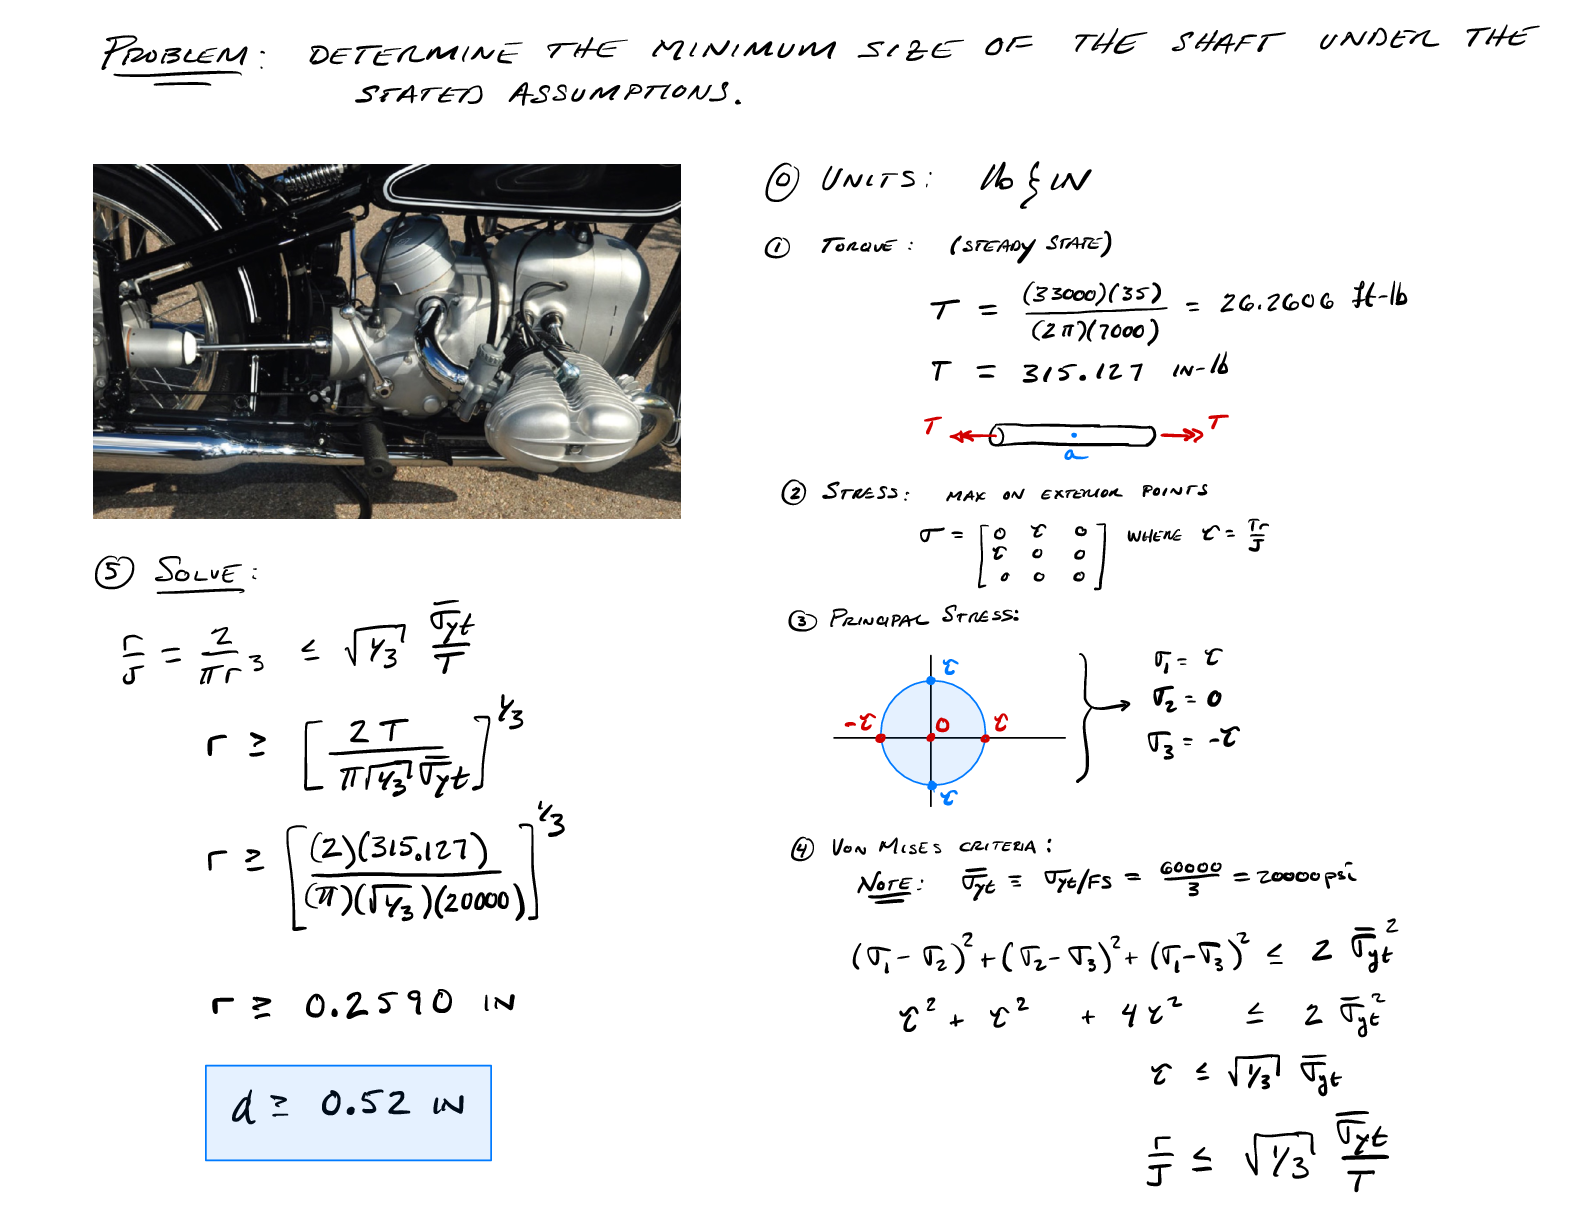 PROBLEM: DETERMINE THE MINIMUM SIZE OF THE SHAFT UNDER THE
STATED ASSUMPTIONS.
⓪ UNITS: lb & IN
① TORQUE: (STEADY STATE)
T = (33000)(35) / (2π)(7000) = 26.2606 ft-lb
T = 315.127 IN-lb
T T
a
② STRESS: MAX ON EXTERIOR POINTS
σ = [0 τ 0
τ 0 0
0 0 0] WHERE τ = Tr/J
③ PRINCIPAL STRESS:
τ
-τ 0 τ
τ
σ₁ = τ
σ₂ = 0
σ₃ = -τ
④ VON MISES CRITERIA:
NOTE: σ̿yt ≡ σyt/FS = 60000/3 = 20000 psi
(σ₁ - σ₂)² + (σ₂ - σ₃)² + (σ₁ - σ₃)² ≤ 2 σ̿yt²
τ² + τ² + 4τ² ≤ 2 σ̿yt²
τ ≤ √(1/3) σ̿yt
r/J ≤ √(1/3) σ̿yt/T
⑤ SOLVE:
r/J = 2/πr³ ≤ √(1/3) σ̿yt/T
r ≥ [2T / π√(1/3) σ̿yt]^1/3
r ≥ [(2)(315.127) / (π)(√(1/3))(20000)]^1/3
r ≥ 0.2590 IN
d ≥ 0.52 IN